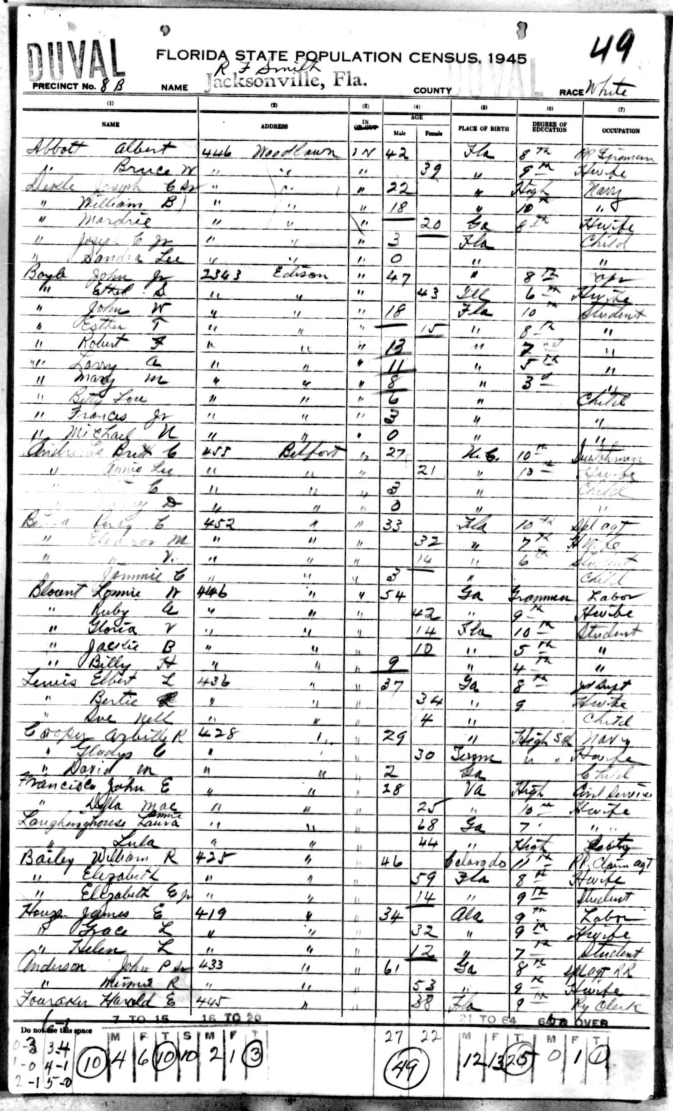 49
DUVAL
FLORIDA STATE POPULATION CENSUS, 1945
R F Smith
Jacksonville, Fla.
PRECINCT No. 8 B NAME COUNTY RACE White
(1) (2) (3) (4) (5) (6) (7)
NAME ADDRESS IN AGE Male Female PLACE OF BIRTH DEGREE OF EDUCATION OCCUPATION
Abbott Albert 446 Woodlawn IN 42 Fla 8th RR Fireman
" Bruce W " " " 39 " 9th Hwife
Joseph C Sr " " " 22 " High Navy
" William B " " " 18 " 10th "
" Mardrie " " " 20 Ga 8th Hwife
" Josep C Jr " " " 3 Fla Child
" Sandra Lee " " " 0 " "
Boyle John Jr 2343 Edison " 47 " 8th
" Ethel S " " " 43 Ill 6th Hwife
" John W " " " 18 Fla 10th Student
" Esther T " " " 15 " 8th "
" Robert F " " " 13 " 7th "
" Larry A " " " 11 " 5th "
" Mary M " " " 8 " 3d "
" Betty Lou " " " 6 " Child
" Francis Jr " " " 3 " "
" Michael N " " " 0 " "
Britt C 455 Belfort " 27 N.C. 10th
" Annie Lee " " " 21 " 10th Hwife
" C " " " 3 " Child
" D " " " 0 " "
Percy C 452 " " 33 Fla 10th Spl agt
" Eleanor M " " " 32 " 7th Hwife
" V. " " " 14 " 6th Student
" Jimmie C " " " 3 " Child
Blount Lonnie W 446 " " 54 Ga Grammer Labor
" Ruby A " " " 42 " 9th Hwife
" Gloria V " " " 14 Fla 10th Student
" Jackie B " " 10 " 5th "
" Billy H " " 9 " 4th "
Lewis Elbert L 436 " 37 Ga 8th
" Bertie " " 34 " 9 Hwife
" Sue Nell " " 4 " Child
Cooper R 428 " 29 " High Sch Navy
" Gladys C " " 30 Tenn " " Hwife
" David M " " 2 Ga Child
Francisco John E " " 28 Va High Civil Service
" Della Mae " " 25 " 10th Hwife
Laughinghouse Laura " " 68 Ga 7 " "
" Lula " " 44 " High
Bailey William R 425 " 46 Colorado 11th RR Claim agt
" Elizabeth " " 59 Fla 8th Hwife
" Elizabeth E Jr " " 14 " 9th Student
House James E 419 " 34 Ala 9th Labor
" Grace L " " 32 " 9th Hwife
" Helen L " " 12 " 7th Student
Anderson John P Sr 433 " 61 Ga 8th Spl agt RR
" Minnie R " " 53 " 9th Hwife
Fouraker Harold E 445 " 38 Fla 9th Ry Clerk
Do not use this space
7 TO 15 16 TO 20 21 TO 64 65 & OVER
M F T S M F T 27 22 M F T M F T
3-4
1-0 4-1
2-1 5-0
10 4 6 10 10 2 1 3 49 12 13 25 0 1 1